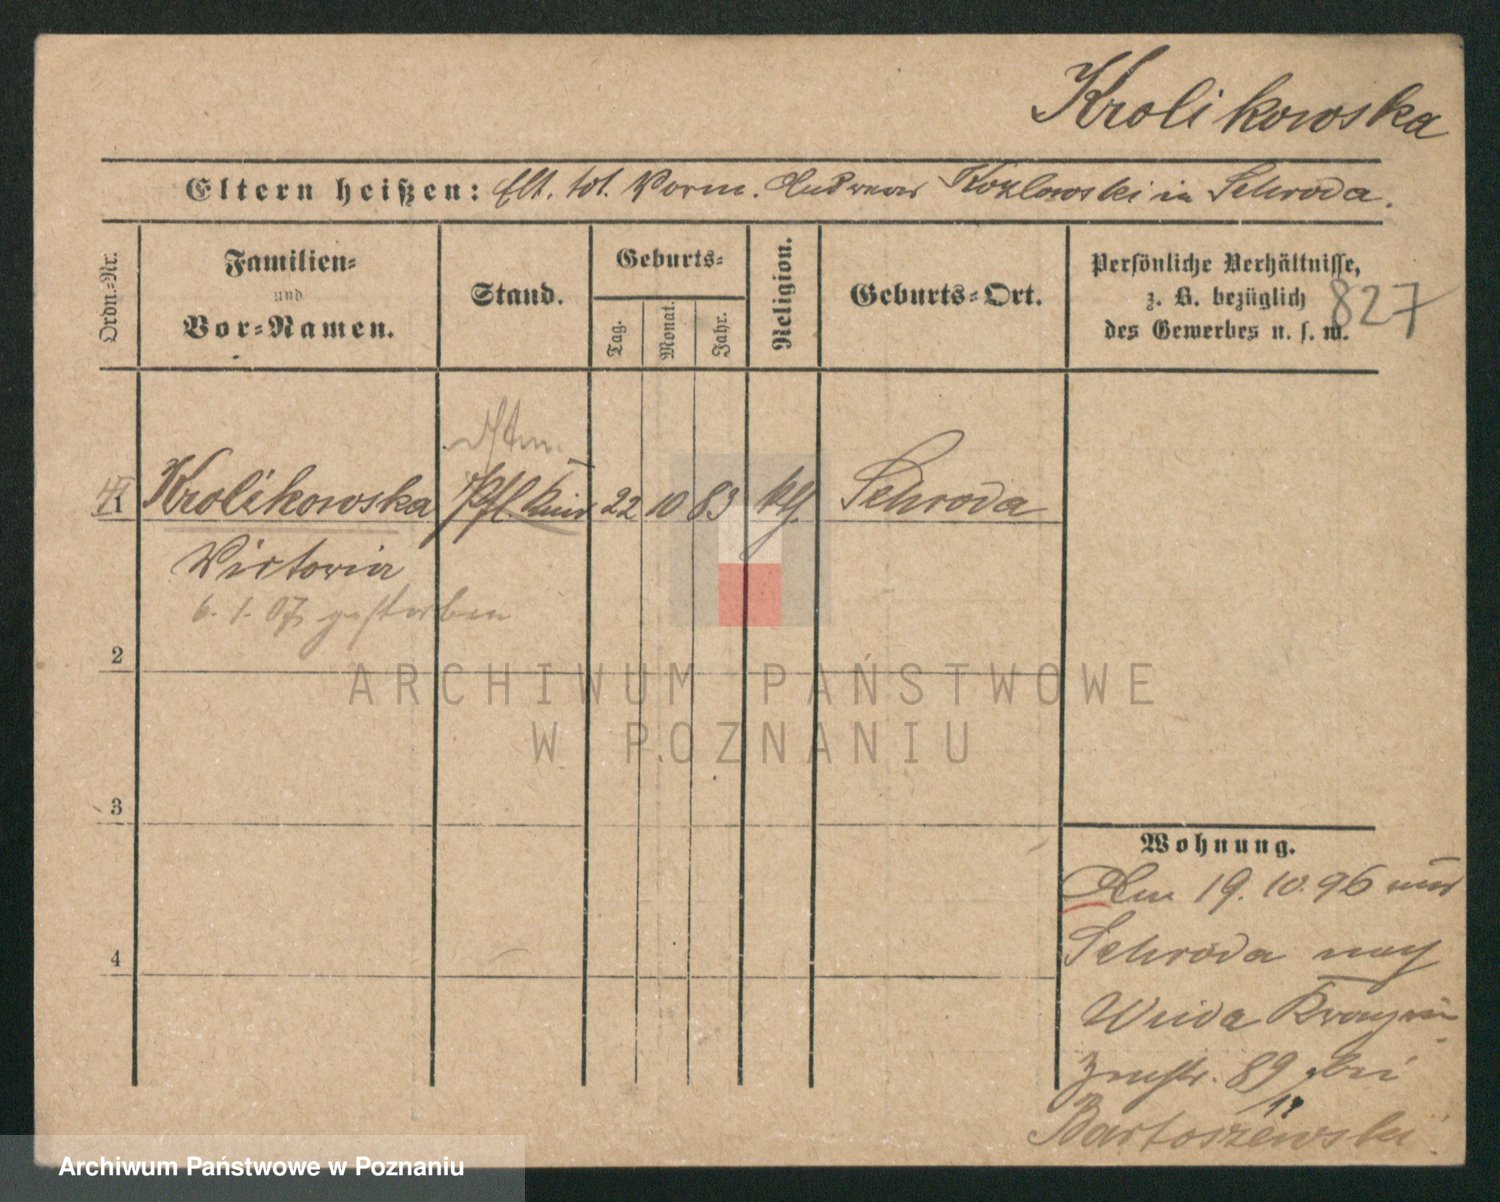 Krolikowska
Eltern heißen: Elt. tot. Vorm. Andreas Kozlowski in Schroda.
Ordn.-Nr.
Familien-
und
Vor-Namen.
Stand.
Geburts-
Tag.
Monat.
Jahr.
Religion.
Geburts-Ort.
Persönliche Verhältnisse,
z. B. bezüglich
des Gewerbes u. s. w.
827
1 Krolikowska Pfl. 22 10 83 kth. Schroda
Victoria
6. 1. 07 gestorben
2
3
4
Wohnung.
Am 19. 10. 96 aus
Schroda nach
89 bei
Bartoszewski
ARCHIWUM PAŃSTWOWE
W POZNANIU
Archiwum Państwowe w Poznaniu